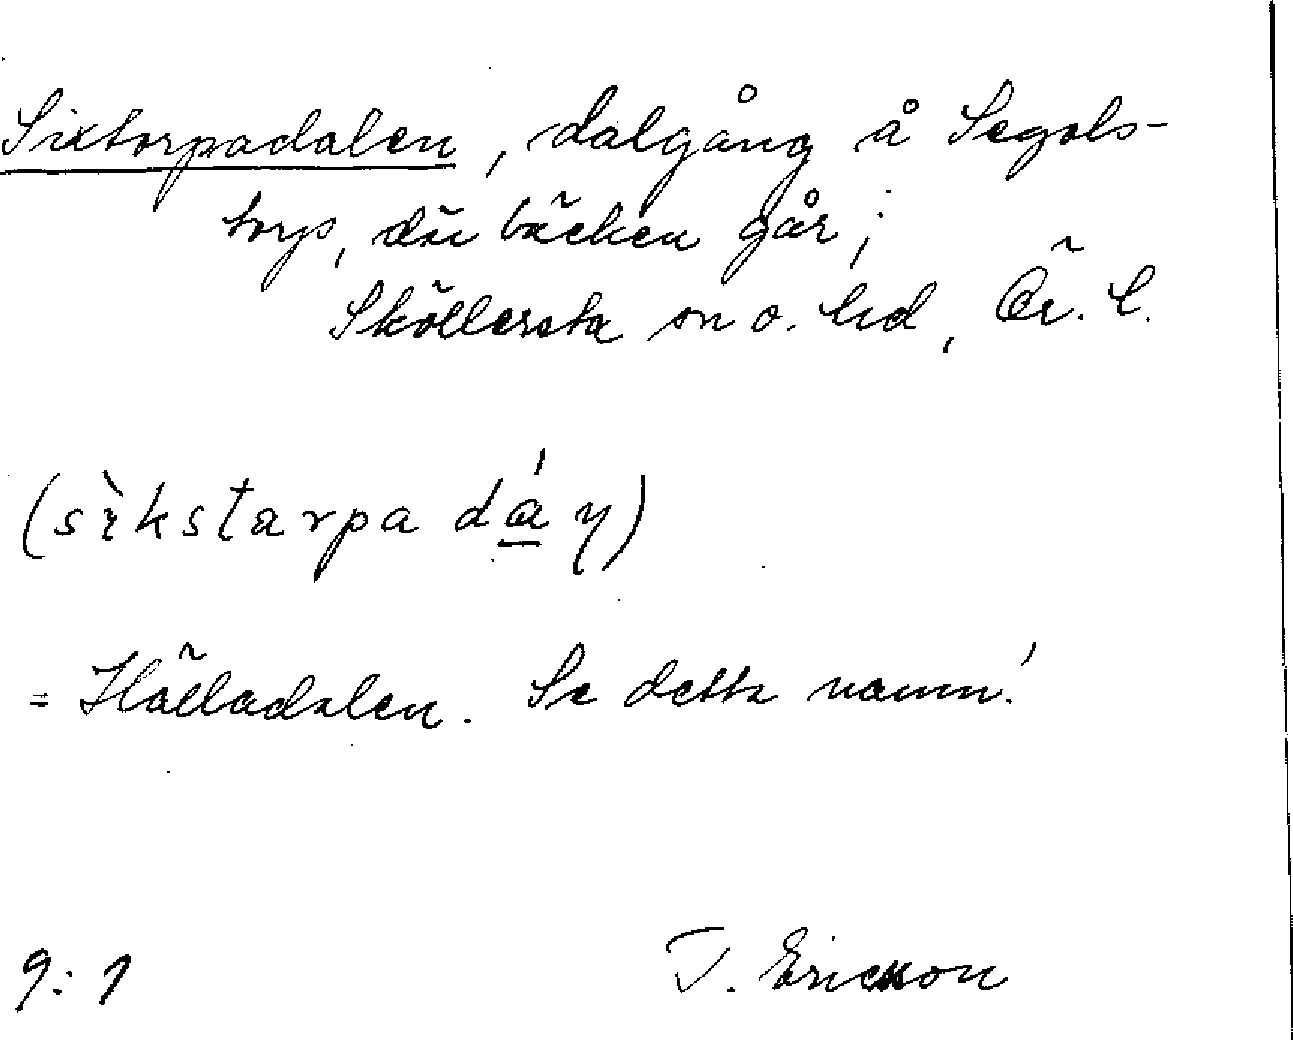 Sixtorpadalen, dalgång å Segols-
torp, där bäcken går;
Sköllersta sn o. hd, Ör. l.
(sìkstarpa dáɳ)
= Hälladalen. Se detta namn!
9: 1 T. Ericsson